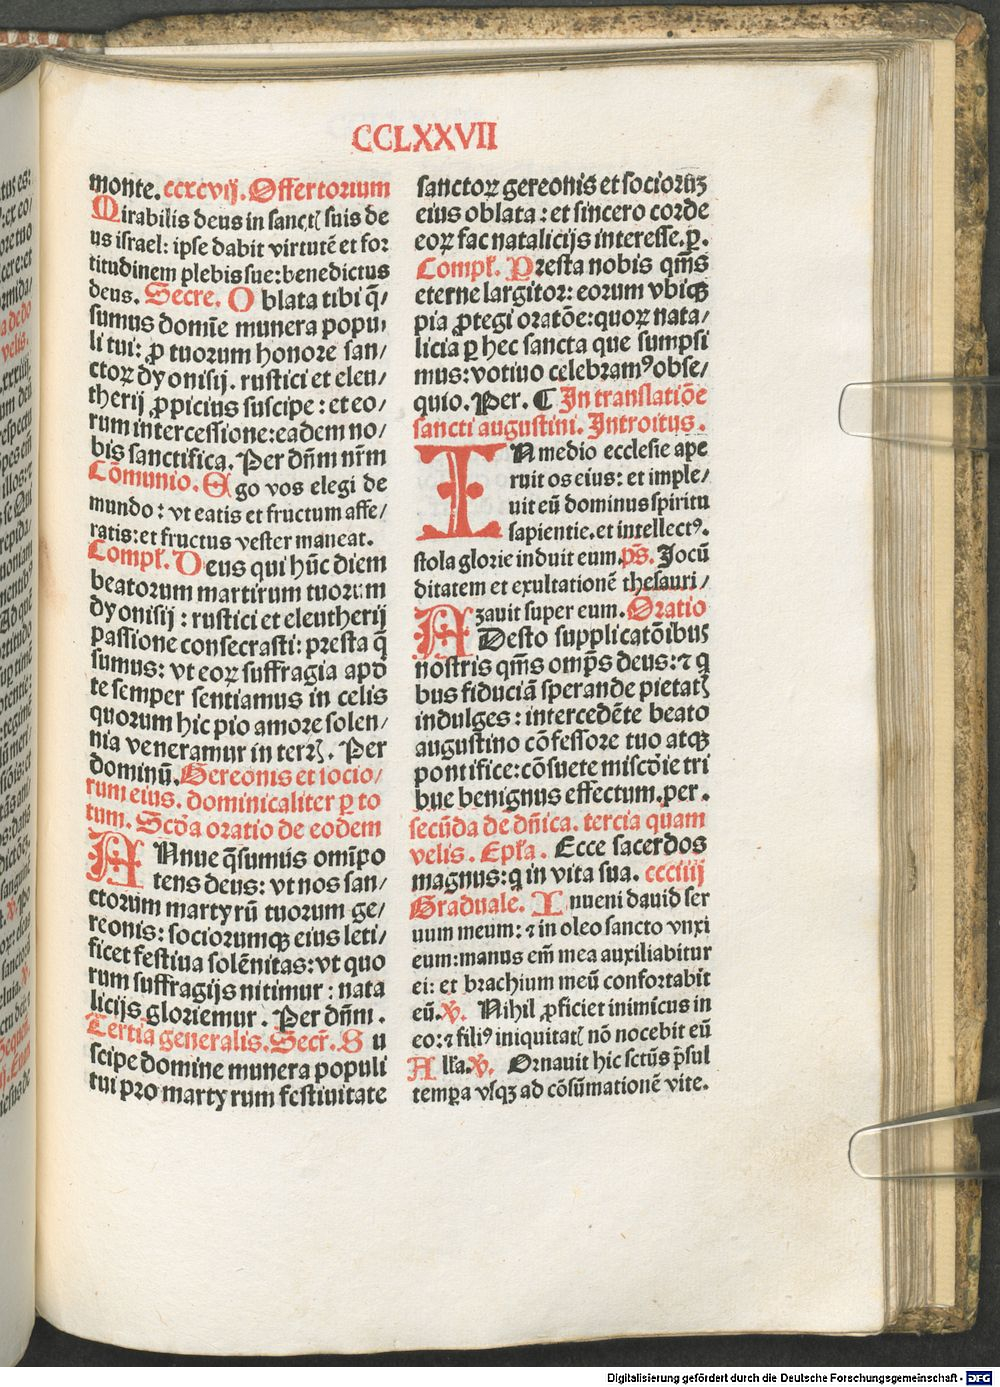 CCLXXVII
monte. ccxcvij. Offertorium
Mirabilis deus in sanctꝭ suis de
us israel: ipse dabit virtutē et for
titudinem plebis sue: benedictus
deus. Secre. Oblata tibi q̄/
sumus domīe munera popu/
li tui: ꝓ tuorum honore san/
ctoꝝ dyonisij. rustici et eleu/
therij ꝓpicius suscipe: et eo/
rum intercessione: eadem no/
bis sanctifica. Per dn̄m nr̄m
Cōmunio. Ego vos elegi de
mundo: vt eatis et fructum affe/
ratis: et fructus vester maneat.
Compl̄. Deus qui hūc diem
beatorum martirum tuorum
dyonisij: rustici et eleutherij
passione consecrasti: presta q̄
sumus: vt eoꝝ suffragia apd
te semper sentiamus in celis
quorum hic pio amore solen/
nia veneramur in terrꝭ. Per
dominū. Gereonis et socio/
rum eius. dominicaliter ꝑ to
tum. Scd̄a oratio de eodem
Annue q̄sumus omīpo
tens deus: vt nos san/
ctorum martyrū tuorum ge/
reonis: sociorumqꝫ eius leti/
ficet festiua solēnitas: vt quo
rum suffragijs nitimur: nata
licijs gloriemur. Per dn̄m.
Tertia generalis. Secr̄. Su
scipe domine munera populi
tui pro martyrum festiuitate
sanctoꝝ gereonis et sociorūꝫ
eius oblata: et sincero corde
eoꝝ fac natalicijs interesse. p.
Compl̄. Presta nobis qm̄s
eterne largitor: eorum vbiqꝫ
pia ꝓtegi oratōe: quoꝝ nata/
licia ꝑ hec sancta que sumpsi
mus: votiuo celebramꝰ obse/
quio. Per. ¶ In translatiōe
sancti augustini. Introitus.
IN medio ecclesie ape
ruit os eius: et imple/
uit eū dominus spiritu
sapientie. et intellectꝰ.
stola glorie induit eum. ps̄. Jocū
ditatem et exultationē thesauri/
zauit super eum. Oratio
ADesto supplicatōibus
nostris qm̄s omp̄s deus: ⁊ q
bus fiduciā sperande pietatꝭ
indulges: intercedēte beato
augustino cōfessore tuo atqꝫ
pontifice: cōsuete miscd̄ie tri
bue benignus effectum. per.
secūda de dn̄ica. tercia quam
velis. Epl̄a. Ecce sacerdos
magnus: q in vita sua. ccciiij
Graduale. Inueni dauid ser
uum meum: ⁊ in oleo sancto vnxi
eum: manus em̄ mea auxiliabitur
ei: et brachium meū confortabit
eū. ℣. Nihil ꝓficiet inimicus in
eo: ⁊ filiꝰ iniquitatꝭ nō nocebit eū
All̄a. ℣. Ornauit hic sctūs p̄sul
tempꝑa vsqꝫ ad cōsūmationē vite.
Digitalisierung gefördert durch die Deutsche Forschungsgemeinschaft - DFG